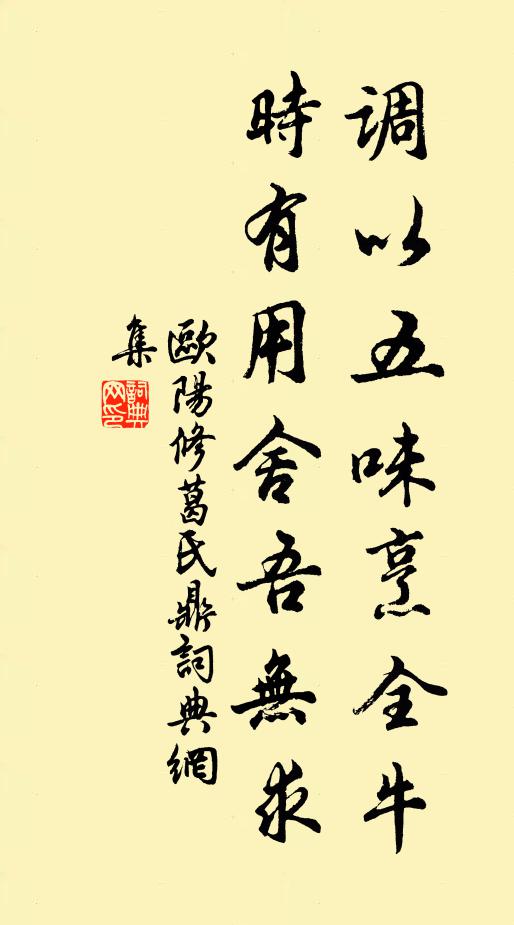 調以五味烹全牛
時有用舍吾無求
歐陽修葛氏鼎詞典網
集
詞典網印